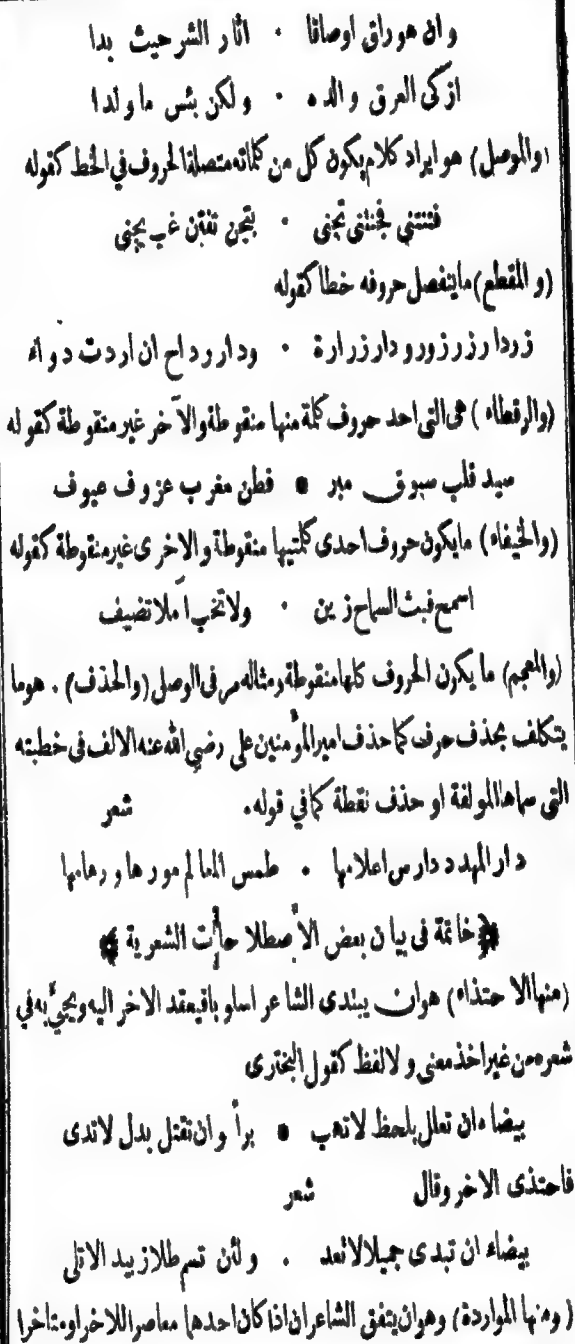 وان هو راق اوصافا ۰ اثار الشر حيث بدا
ازكى العرق والده ۰ ولكن بئس ما ولدا
(والموصل) هو ايراد كلام يكون كل من كلماته متصلة الحروف في الخط كقوله
فتنتني فجننتني تجني ۰ بتجن تفتن غب تجني
(و المقطع) ما ينفصل حروفه خطا كقوله
زردار زرزور ودار زرارة ۰ ودار رداح ان اردت دواء
(والرقطاء) هي التي احد حروف كلمة منها منقوطة والآخر غير منقوطة كقوله
سيد قلب سبوق مبر ۰ فطن مغرب عزوف عيوف
(والخيفاء) ما يكون حروف احدى كلمتيها منقوطة والاخرى غير منقوطة كقوله
اسمح فبث السماح زين ۰ ولا تخب آملا تضيف
(والمعجم) ما يكون الحروف كلها منقوطة ومثاله مر في الوصل (والحذف) . هو ما
يتكلف بحذف حرف كما حذف امير المؤمنين على رضي الله عنه الالف في خطبته
التي سماها المولفة او حذف نقطة كما في قوله. شعر
دار المهدد دارس اعلامها . طمس المعالم مورها ورهامها
﴿خاتمة في بيان بعض الاصطلاحات الشعرية﴾
(منها الاحتذاء) هو ان يبتدى الشاعر اسلوبا فيعقد الاخر اليه ويجيء به في
شعره من غير اخذ معنى ولا لفظ كقول البختري
بيضاء ان تعلل بلحظ لاتهب ۰ برأ وان تقتل بدل لاتدى
فاحتذى الاخر وقال شعر
بيضاء ان تبدى جميلا لاتعد . ولئن تسم طلاز بيد الاتلى
(ومنها المواردة) وهو ان يتفق الشاعران اذا كان احدهما معاصرا للاخر او متاخرا